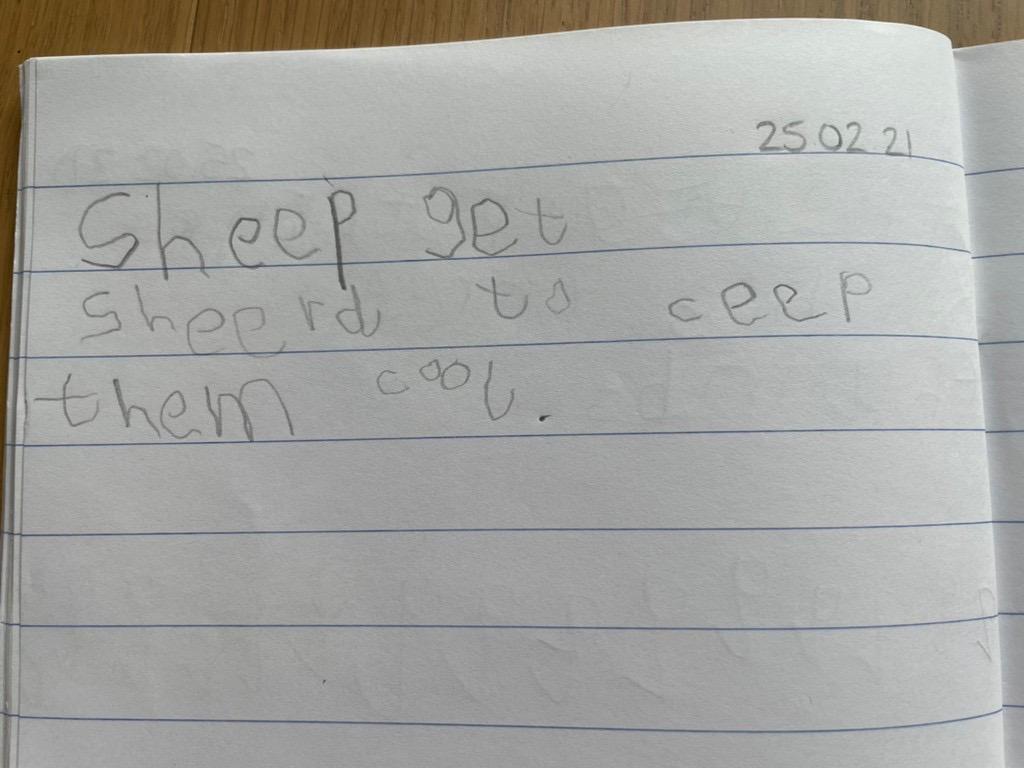 25.02.21
Sheep get
sheerd to ceep
them cool.